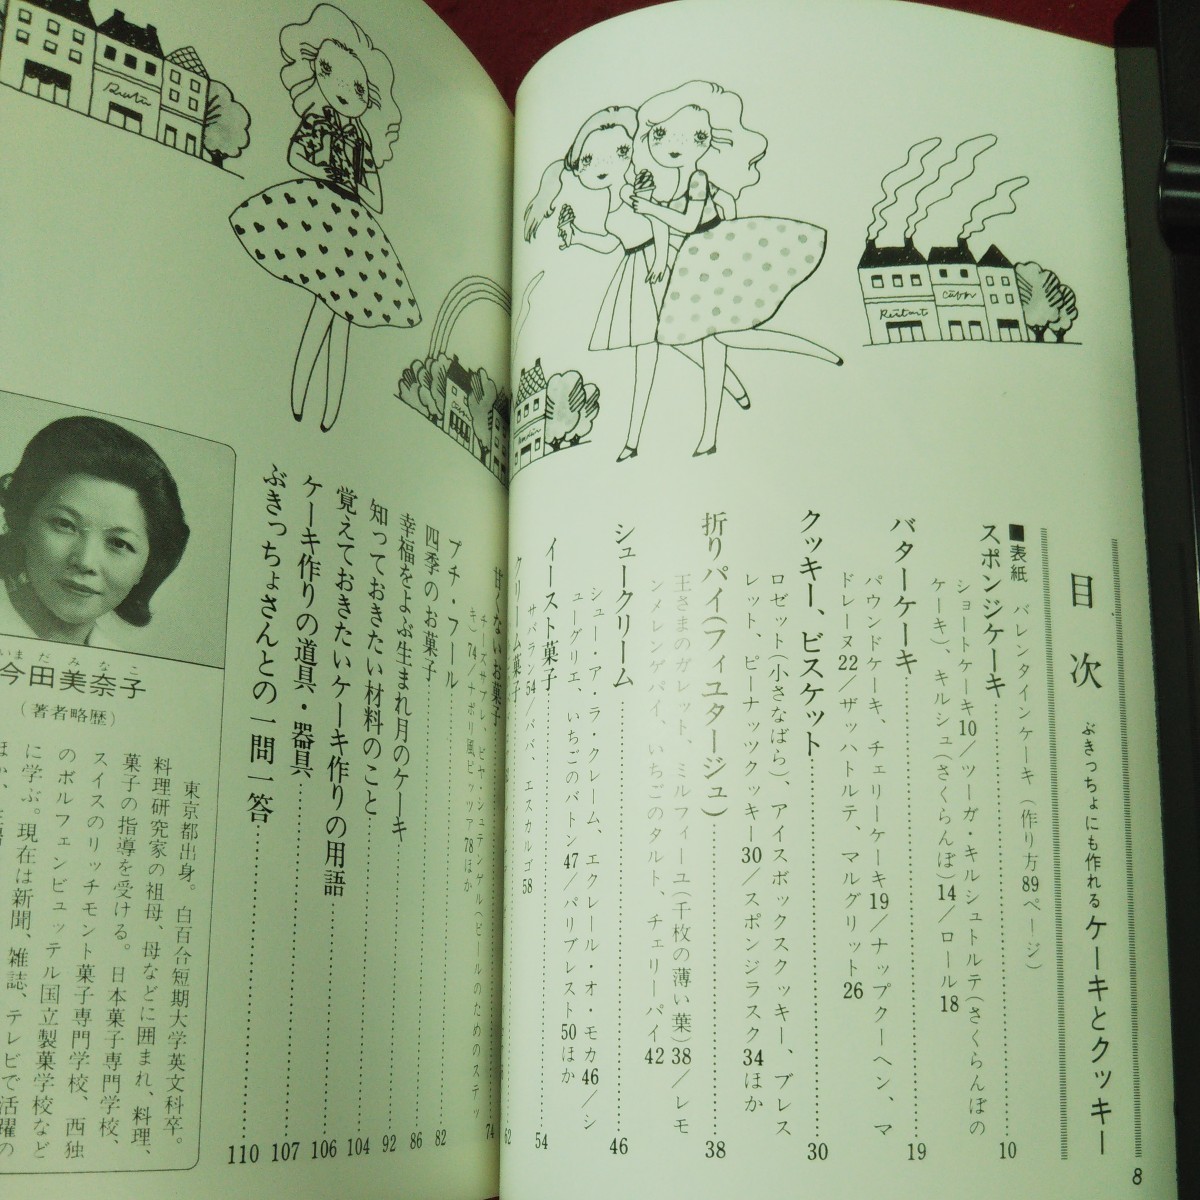 目次
ぶきっちょにも作れるケーキとクッキー
■表紙 バレンタインケーキ(作り方89ページ)
スポンジケーキ 10
ショートケーキ10/ツーガ・キルシュトルテ(さくらんぼの
ケーキ)、キルシュ(さくらんぼ)14/ロール18
バターケーキ 19
パウンドケーキ、チェリーケーキ19/ナップクーヘン、マ
ドレーヌ22/ザッハトルテ、マルグリット26
クッキー、ビスケット 30
ロゼット(小さなばら)、アイスボックスクッキー、ブレス
レット、ピーナッツクッキー30/スポンジラスク34ほか
折りパイ(フィユタージュ) 38
王さまのガレット、ミルフィーユ(千枚の薄い葉)38/レモ
ンメレンゲパイ、いちごのタルト、チェリーパイ42
シュークリーム 46
シュー・ア・ラ・クレーム、エクレール・オ・モカ46/シ
ューグリエ、いちごのバトン47/パリブレスト50ほか
イースト菓子 54
サバラン54/ババ、エスカルゴ58
クリーム菓子 62
甘くないお菓子 74
チーズサブレ、ビヤ・シュテンゲル(ビールのためのステッ
キ)74/ナポリ風ピッツア78ほか
プチ・フール 82
四季のお菓子 86
幸福をよぶ生まれ月のケーキ 92
知っておきたい材料のこと 104
覚えておきたいケーキ作りの用語 106
ケーキ作りの道具・器具 107
ぶきっちょさんとの一問一答 110
8
いまだみなこ
今田美奈子
(著者略歴)
東京都出身。白百合短期大学英文科卒。
料理研究家の祖母、母などに囲まれ、料理、
菓子の指導を受ける。日本菓子専門学校、
スイスのリッチモント菓子専門学校、西独
のボルフェンビュッテル国立製菓学校など
に学ぶ。現在は新聞、雑誌、テレビで活躍の
ほか、